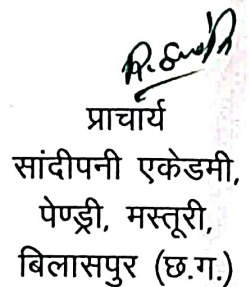 प्राचार्य
सांदीपनी एकेडमी,
पेण्ड्री, मस्तूरी,
बिलासपुर (छ.ग.)